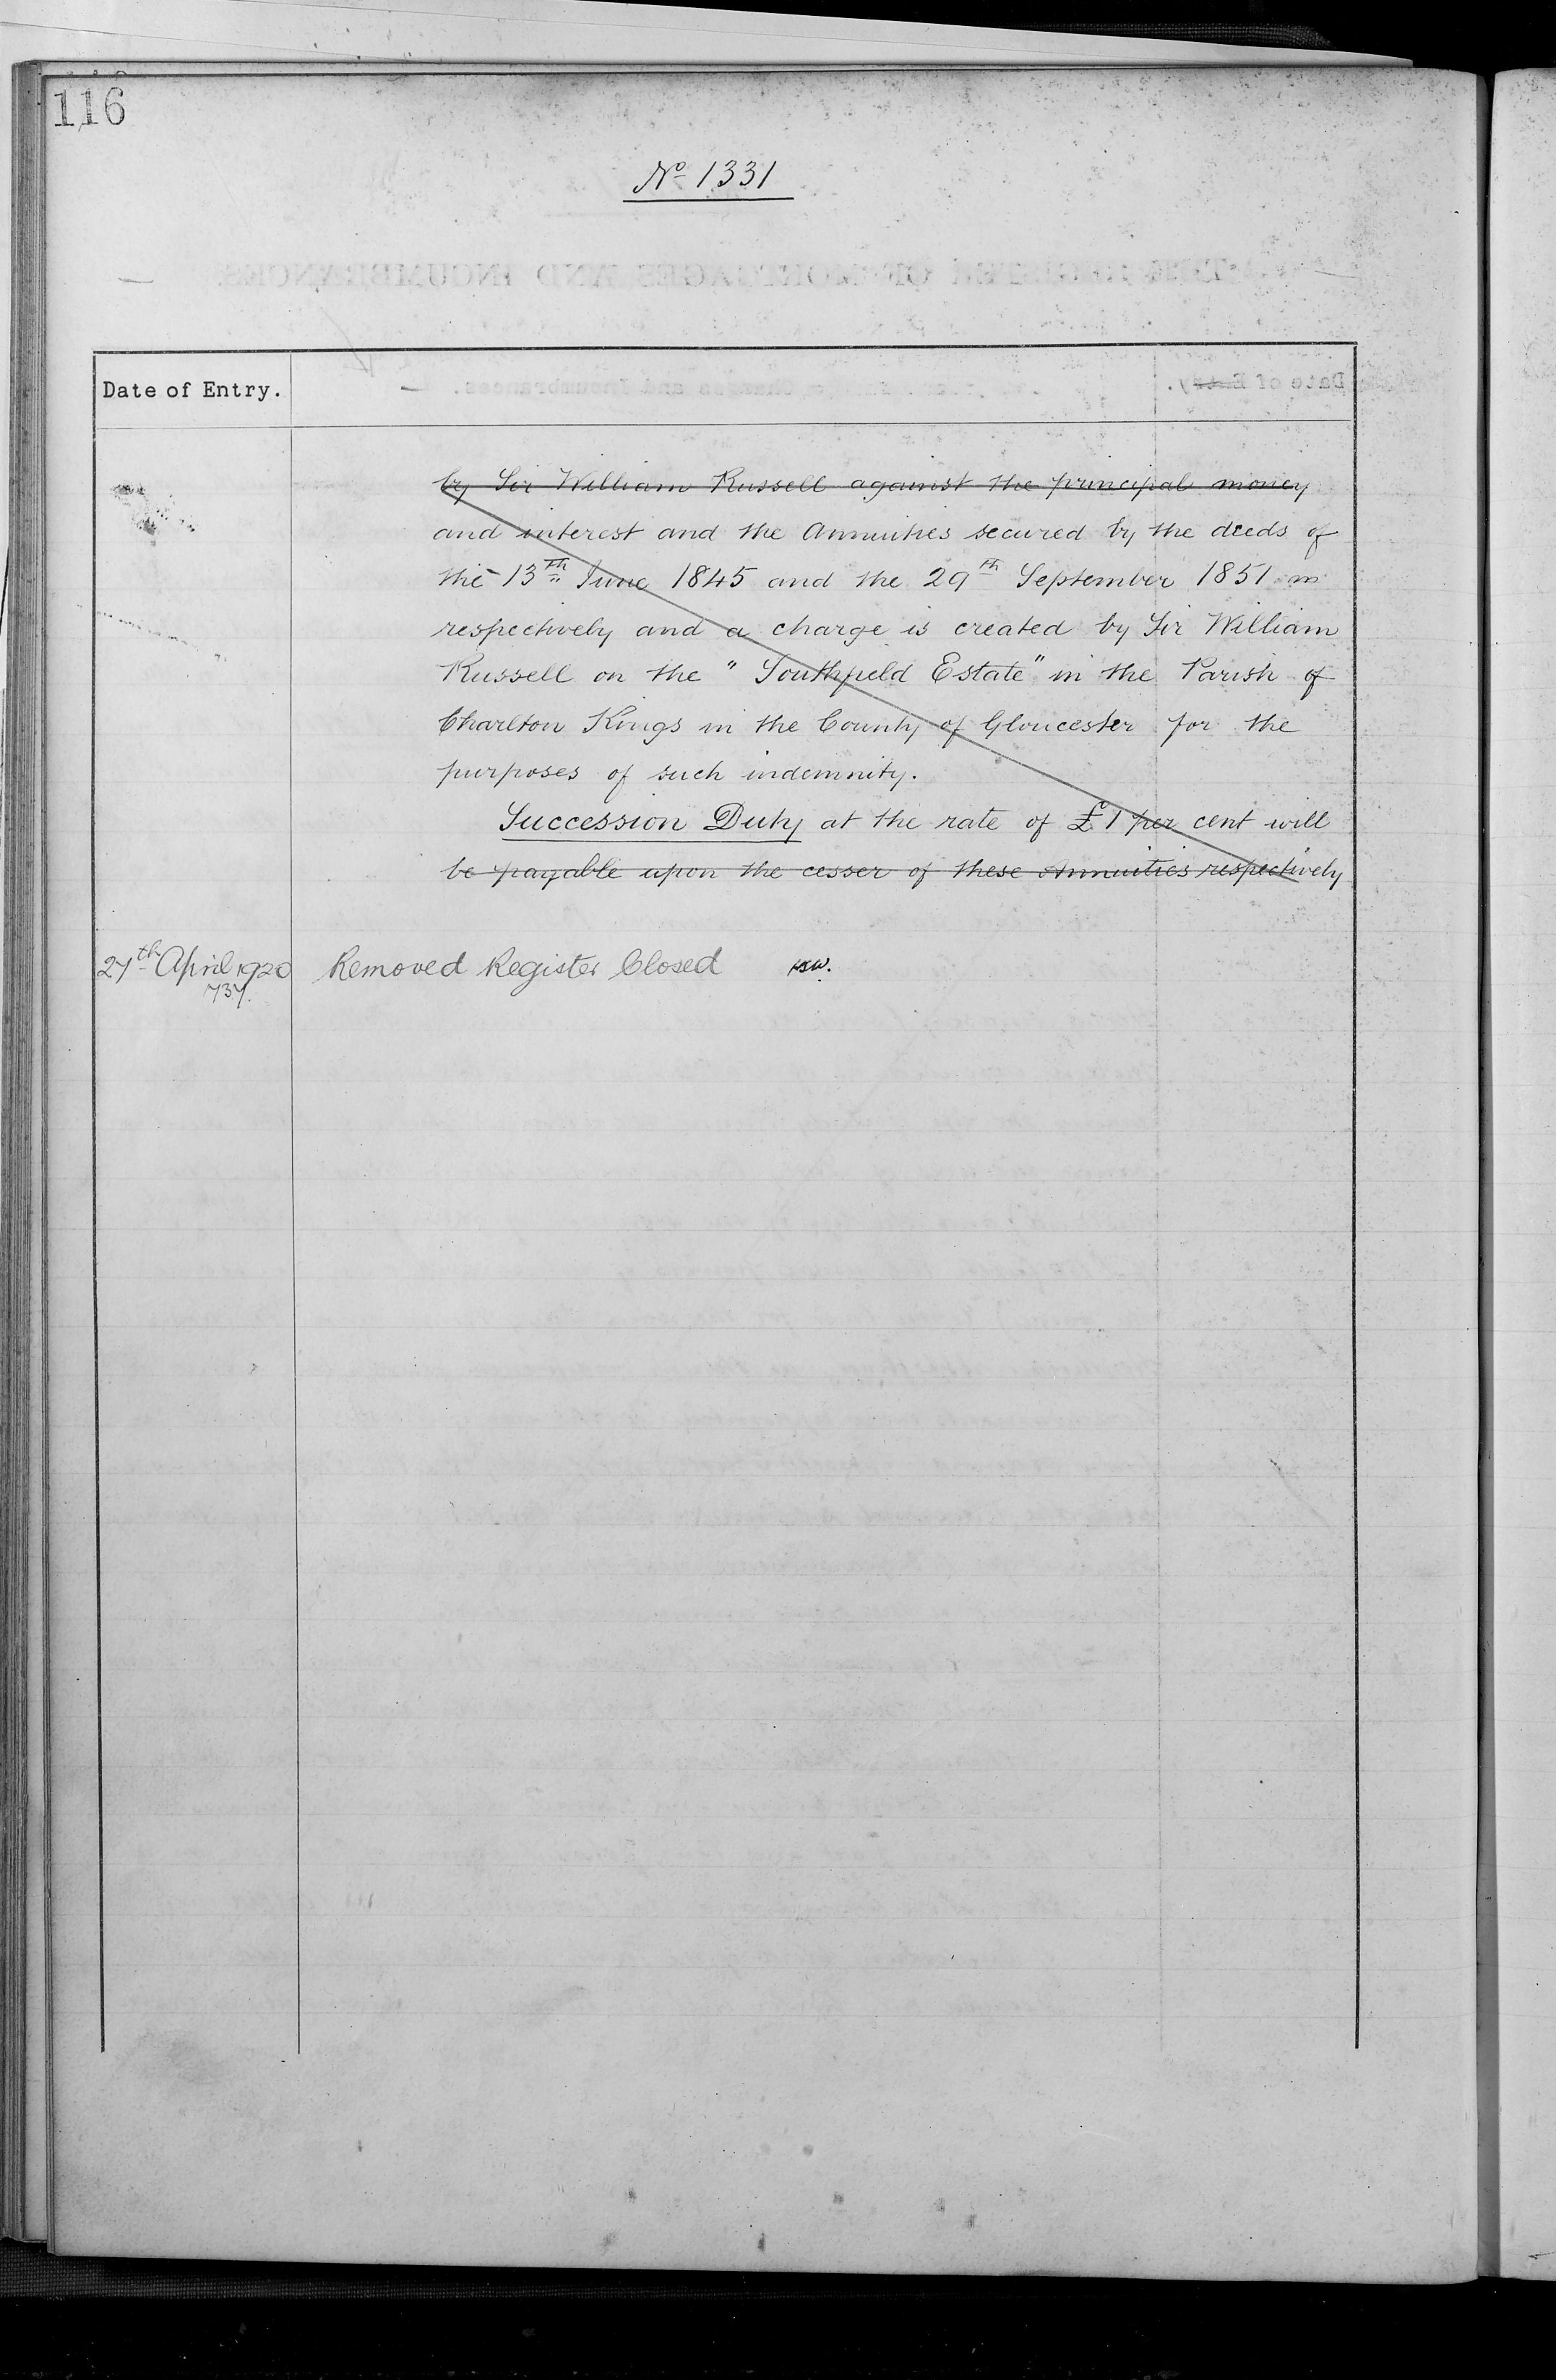 116
No 1331
Date of Entry.
by Sir William Russell against the principal money
and interest and the Annuities secured by the deeds of
the 13th June 1845 and the 29th September 1851
respectively and a charge is created by Sir William
Russell on the "Southfield Estate" in the Parish of
Charlton Kings in the County of Gloucester for the
purposes of such indemnity.
Succession Duty at the rate of £1 per cent will
be payable upon the cesser of these Annuities respectively
27th April 1920 Removed Register Closed
737.